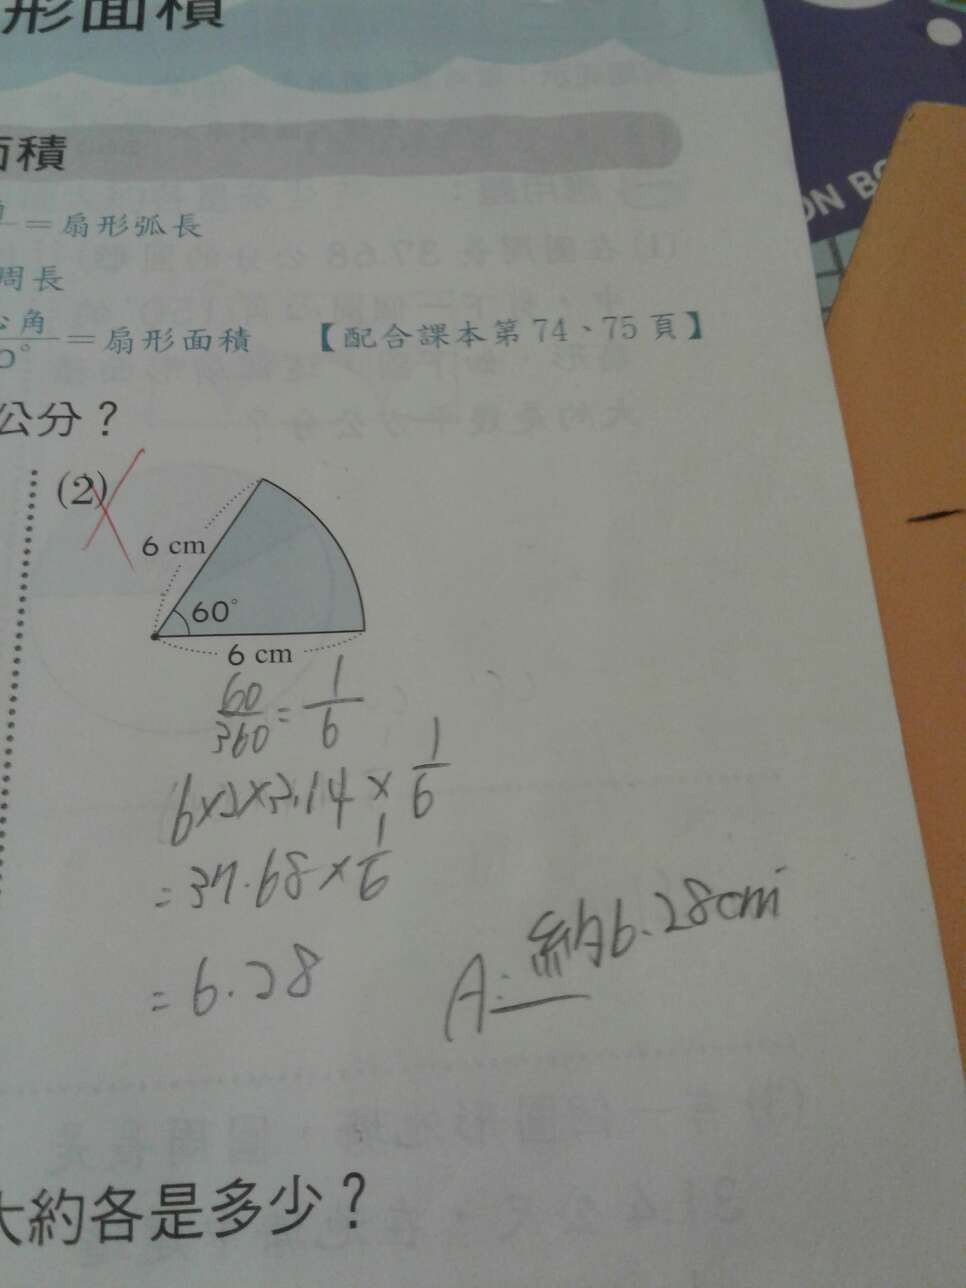 形面積
面積
= 扇形弧長
周長
角
= 扇形面積 【配合課本第74、75頁】
公分？
(2)
6 cm
60°
6 cm
60/360 = 1/6
6×2×3.14×1/6
=37.68×1/6
=6.28
A:約6.28cm
大約各是多少？
ON BO